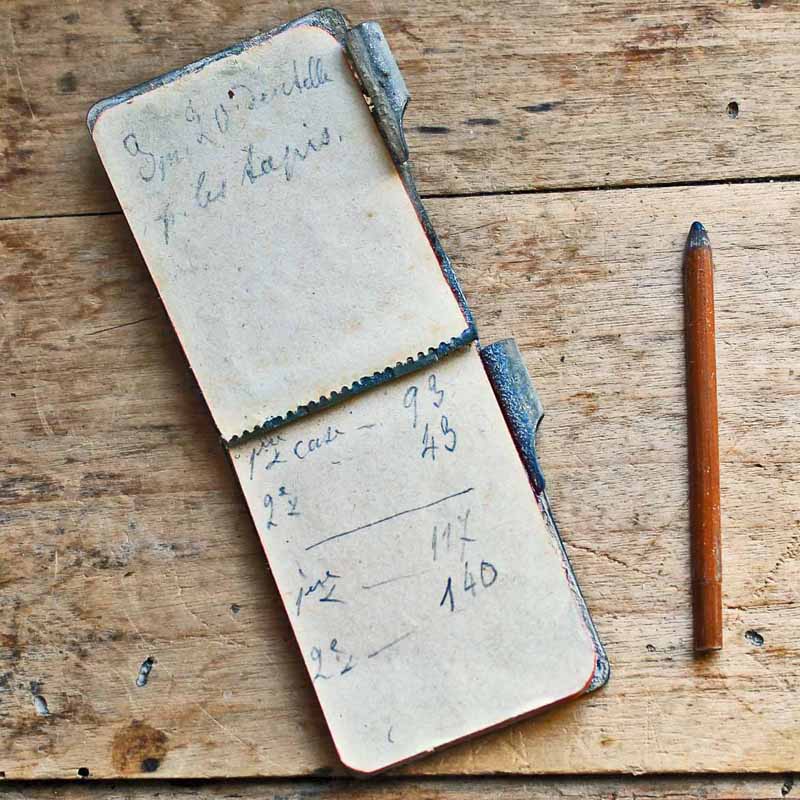 3m, 20 dentelle
p. les tapis.
1ère case — 93
2e 43
1ère — 117
2e — 140